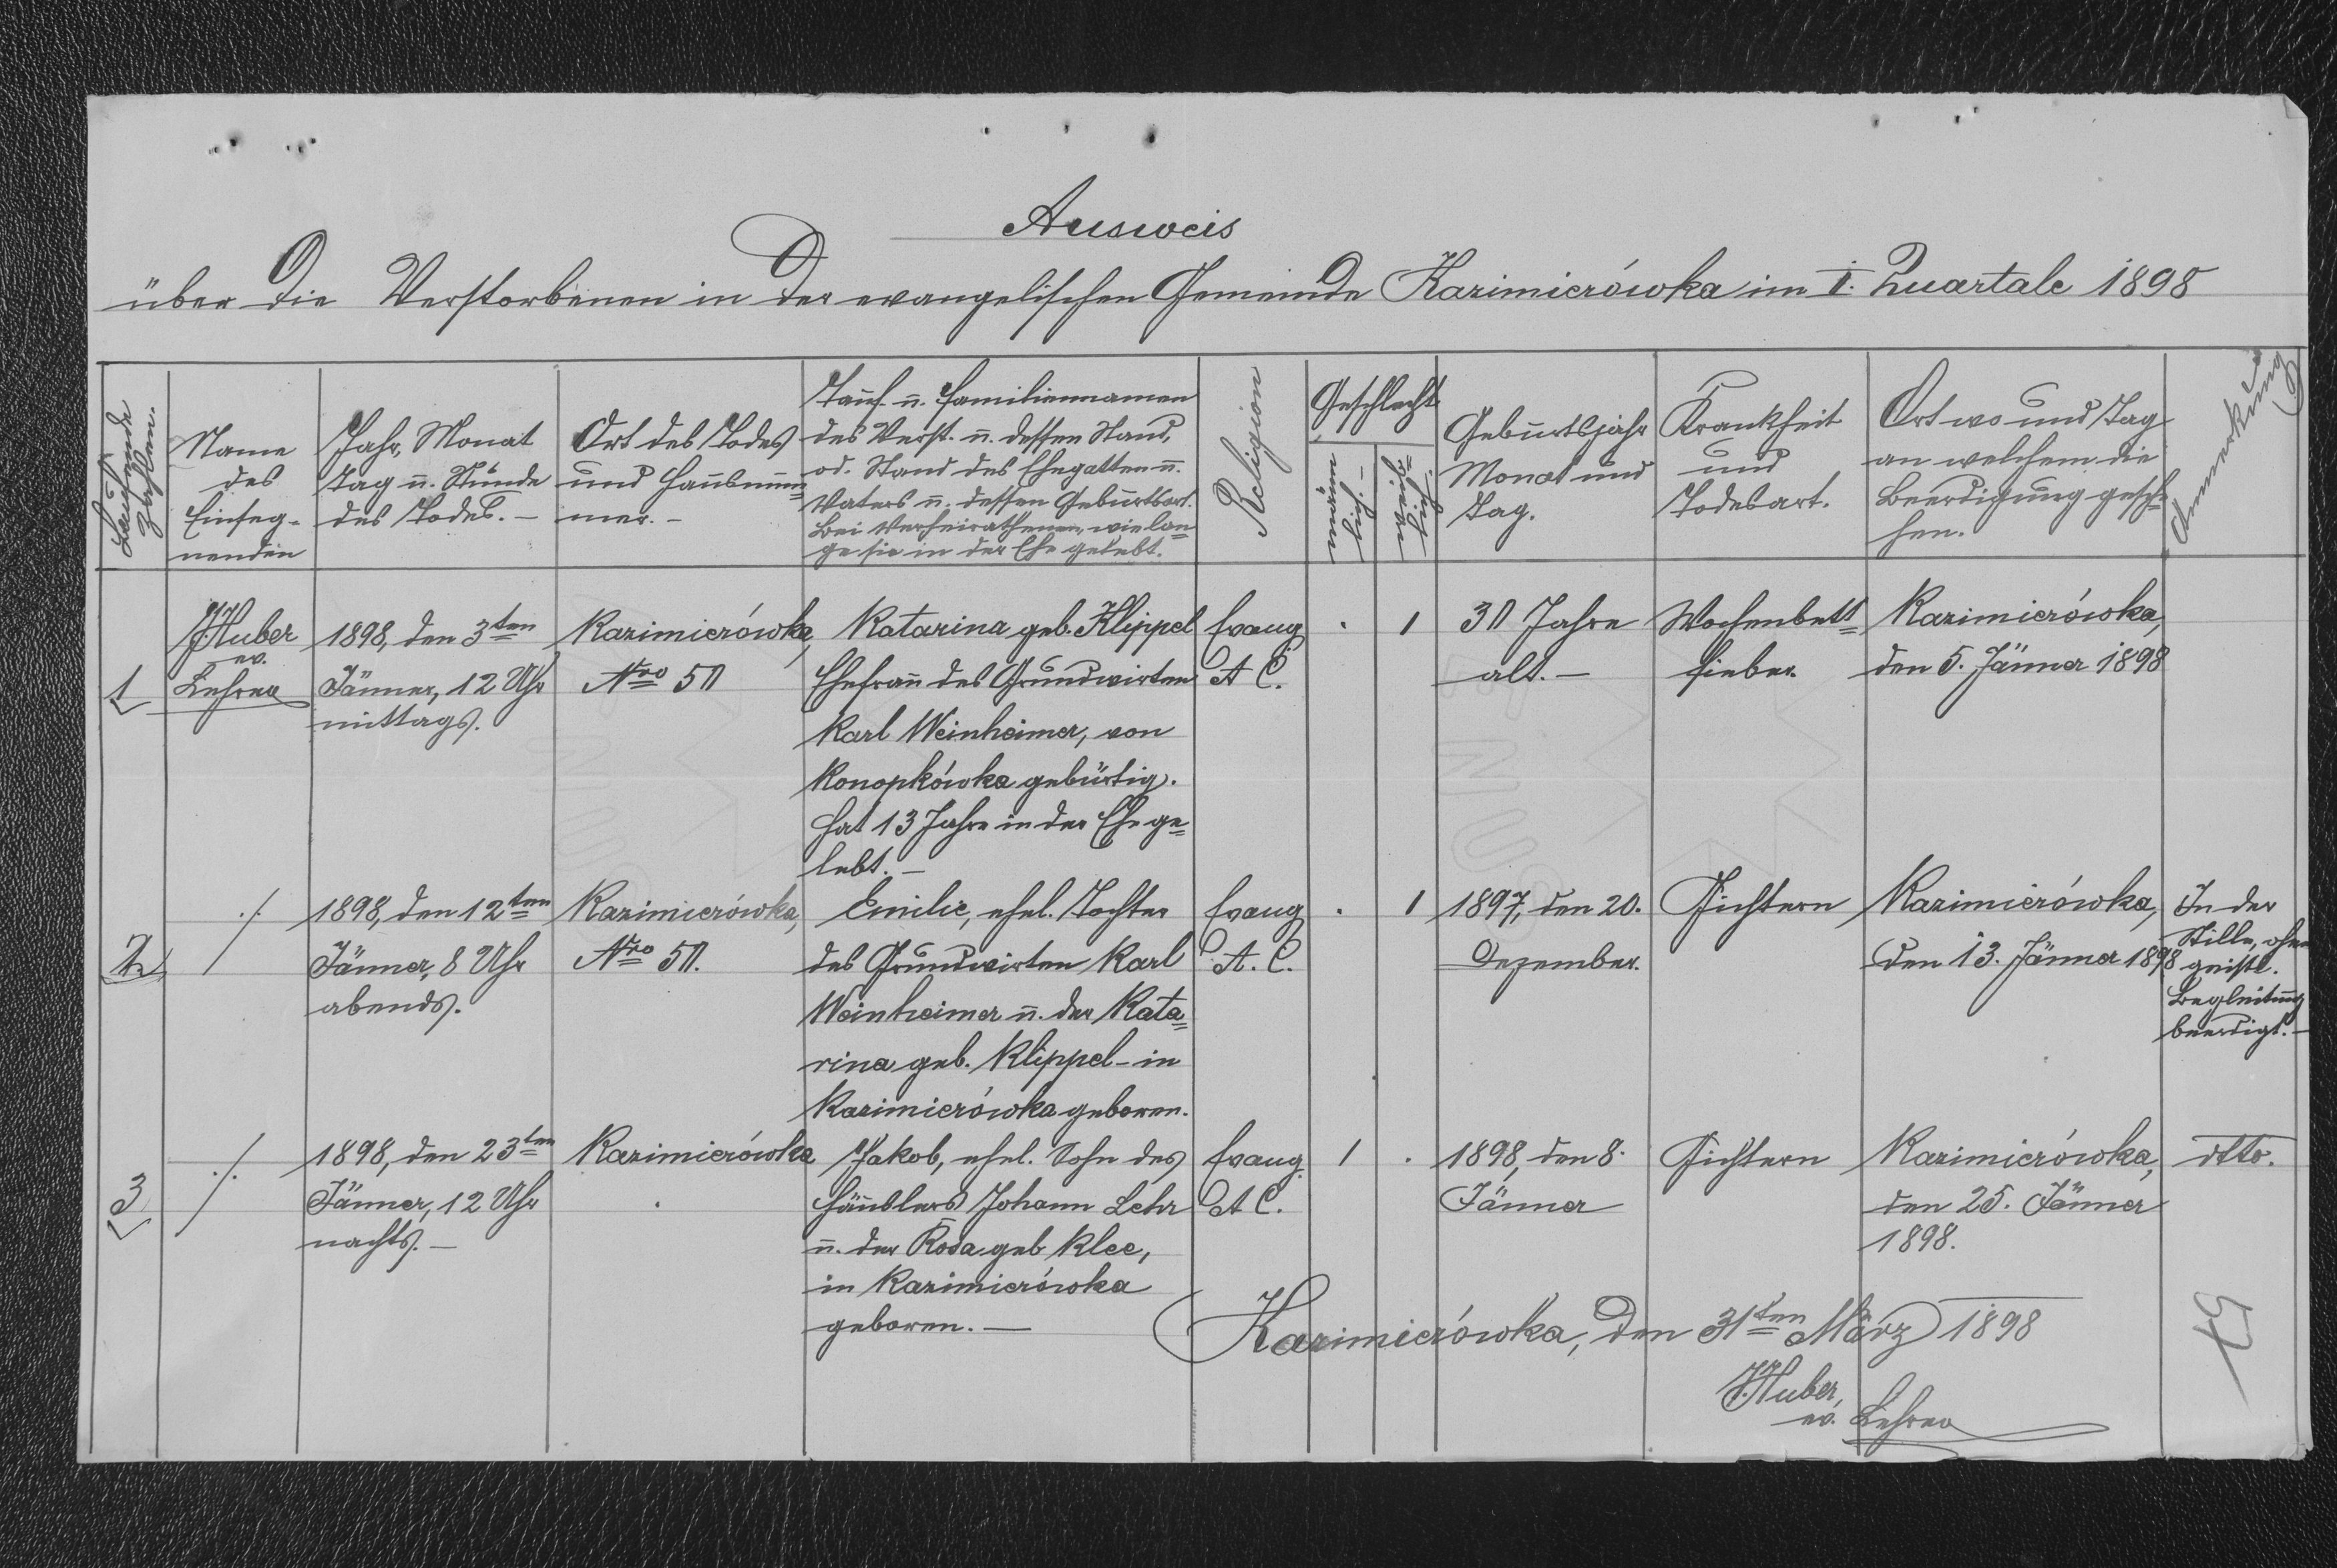 Ausweis
über die Verstorbenen in der evangelischen Gemeinde Kazimierówka im I. Quartale 1898
Laufende
Zahlen.
Name
des
Einseg-
nenden
Jahr, Monat
Tag u. Stunde
des Todes. -
Ort des Todes
und Hausnum=
mer. -
Tauf- u. Familiennamen
des Verst. u. dessen Stand,
od. Stand des Ehegatten u.
Vaters u. dessen Geburtsort.
Bei Verheiratheten, wie lan=
ge sie in der Ehe gelebt.
Religion
Geschlecht
männ-
lich
weib=
lich
Geburtsjahr
Monat und
Tag.
Krankheit
und
Todesart.
Ort wo und Tag
an welchem die
Beerdigung gesche=
hen.
Anmerkung
1
J. Huber
ev.
Lehrer
1898, den 3ten
Jänner, 12 Uhr
mittags.
Kazimierówka,
Nro 50
Katarina geb. Klippel
Ehefrau des Grundwirten
Karl Weinheimer, von
Konopkówka gebürtig.
Hat 13 Jahre in der Ehe ge=
lebt. -
Evang
A C.
. 1
30 Jahre
alt. -
Wochenbett=
fieber.
Kazimierówka,
den 5. Jänner 1898
2
./.
1898, den 12ten
Jänner, 8 Uhr
abends.
Kazimierówka,
Nro 50.
Emilie, ehel. Tochter
des Grundwirten Karl
Weinheimer u. der Kata=
rina geb. Klippel - in
Kazimierówka geboren.
Evang
A. C.
. 1
1897, den 20.
Dezember.
Gichtern
Kazimierówka,
den 13. Jänner 1898
In der
Stille, ohne
geistl.
Begleitung
beerdigt. -
3
./.
1898, den 23ten
Jänner, 12 Uhr
nachts. -
Kazimierówka
.
Jakob, ehel. Sohn des
Häuslers Johann Lehr
u. der Rosa geb. Klee,
in Kazimierówka
geboren. -
Evang.
A C.
1 .
1898, den 8.
Jänner
Gichtern
Kazimierówka,
den 25. Jänner
1898.
dtto.
Kazimierówka, den 31ten März 1898
J. Huber,
ev. Lehrer